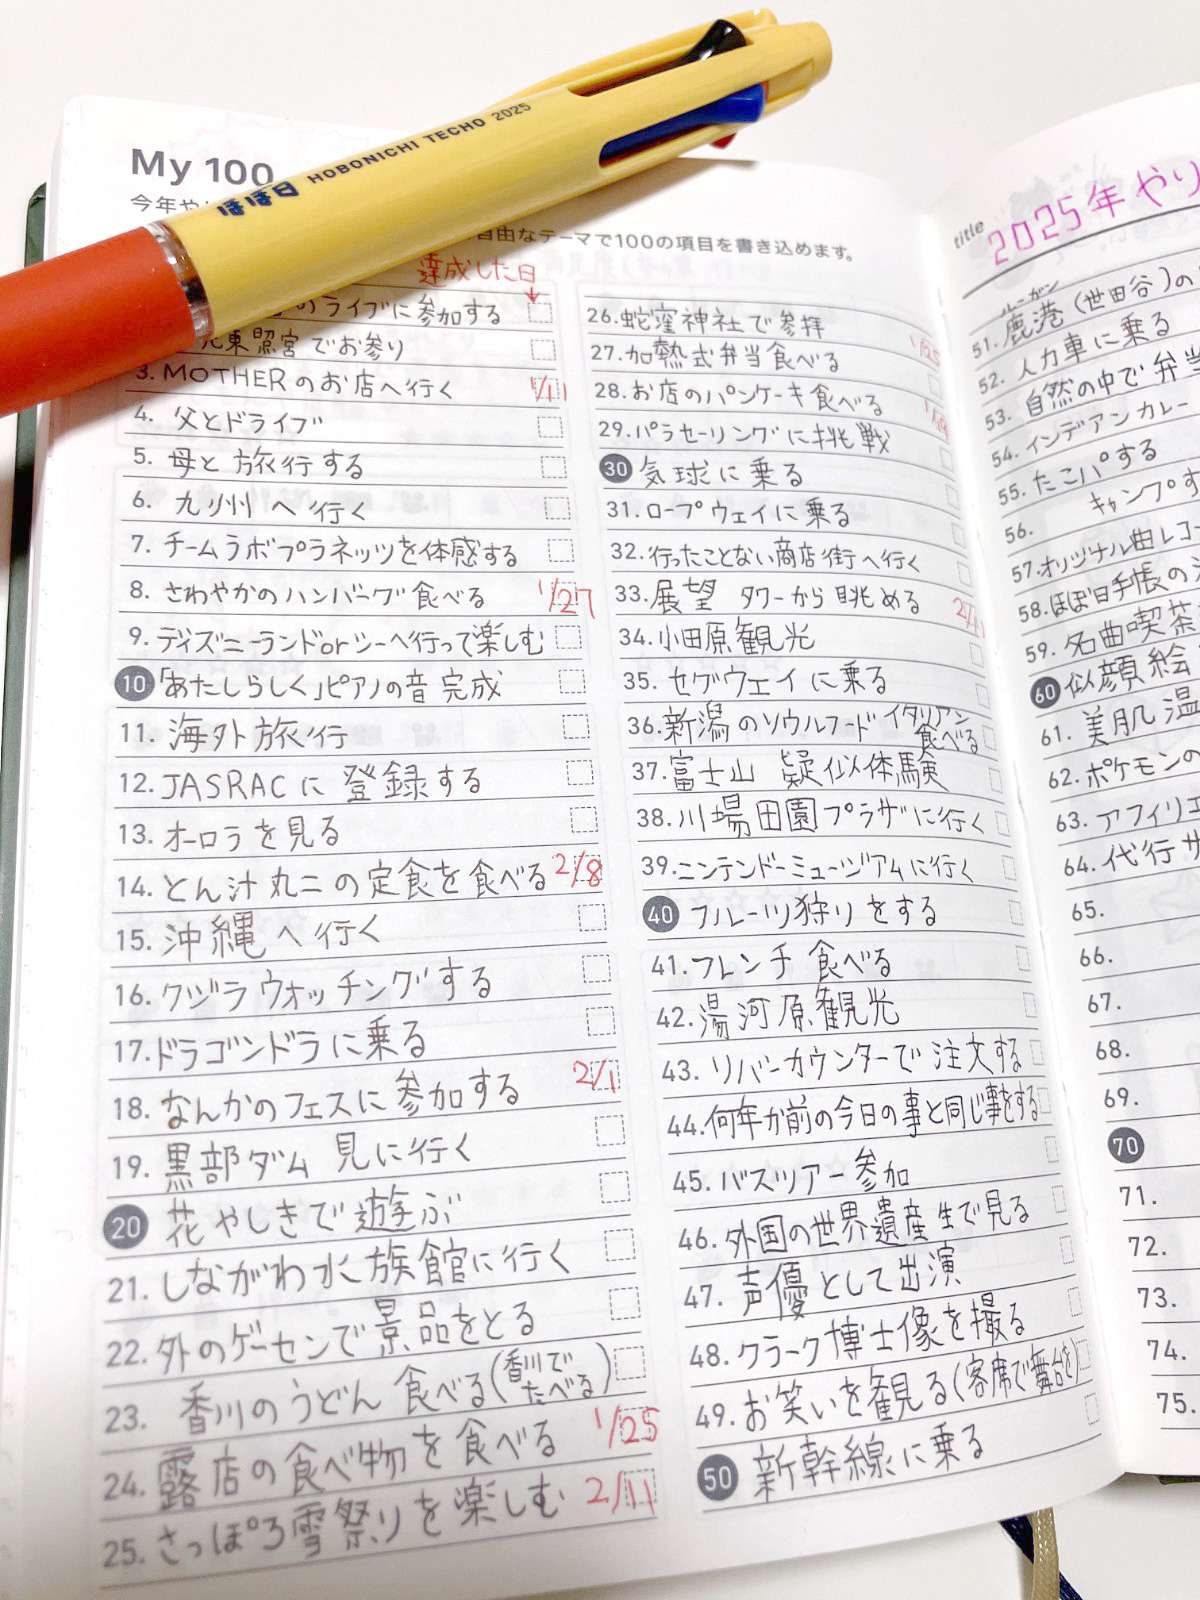 ほぼ日 HOBONICHI TECHO 2025
My 100
今年や
自由なテーマで100の項目を書き込めます。
達成した日
のライブに参加する
東照宮でお参り
3. MOTHERのお店へ行く 1/11
4. 父とドライブ
5. 母と旅行する
6. 九州へ行く
7. チームラボプラネッツを体感する
8. さわやかのハンバーグ食べる 1/27
9. ディズニーランドorシーへ行って楽しむ
10 「あたしらしく」ピアノの音完成
11. 海外旅行
12. JASRACに登録する
13. オーロラを見る
14. とん汁丸二の定食を食べる 2/8
15. 沖縄へ行く
16. クジラウォッチングする
17. ドラゴンドラに乗る
18. なんかのフェスに参加する 2/1
19. 黒部ダム見に行く
20 花やしきで遊ぶ
21. しながわ水族館に行く
22. 外のゲーセンで景品をとる
23. 香川のうどん食べる(香川でたべる)
24. 露店の食べ物を食べる 1/25
25. さっぽろ雪祭りを楽しむ 2/11
26. 蛇窪神社で参拝
27. 加熱式弁当食べる 1/25
28. お店のパンケーキ食べる
29. パラセーリングに挑戦
30 気球に乗る
31. ロープウェイに乗る
32. 行ったことない商店街へ行く
33. 展望タワーから眺める
34. 小田原観光
35. セグウェイに乗る
36. 新潟のソウルフードイタリアン食べる
37. 富士山疑似体験
38. 川場田園プラザに行く
39. ニンテンドーミュージアムに行く
40 フルーツ狩りをする
41. フレンチ食べる
42. 湯河原観光
43. リバーカウンターで注文する
44. 何年か前の今日の事と同じ事をする
45. バスツアー参加
46. 外国の世界遺産生で見る
47. 声優として出演
48. クラーク博士像を撮る
49. お笑いを観る(客席で舞台を)
50 新幹線に乗る
title 2025年やり
51. 鹿港(世田谷)の
52. 人力車に乗る
53. 自然の中で弁当
54. インデアンカレー
55. たこパする
56. キャンプす
57. オリジナル曲レコ
58. ほぼ日手帳の
59. 名曲喫茶
60 似顔絵
61. 美肌温
62. ポケモンの
63. アフィリエ
64. 代行サ
65.
66.
67.
68.
69.
70
71.
72.
73.
74.
75.